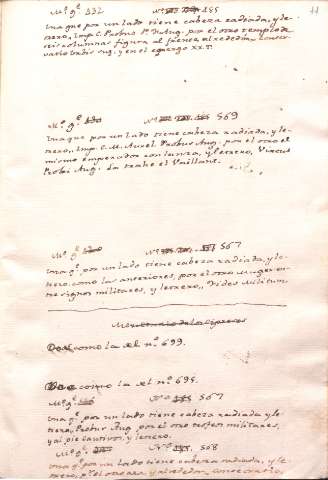 11
M.º g.º 332 185
Una que por un lado tiene cabeza radiada, y le-
trero, Imp. C. Probus P. F. Aug. por el otro templo de
seis columnas figura al frente alrededor
Urbis Aug. y en el exergo XXT.
M.º g.º 569
Una que por un lado tiene cabeza radiada, y le-
trero,, Imp. C. M. Aurel. Probus Aug. por el otro el
mismo emperador con lanza, y letrero, Virtus
Probi Aug. La trahe el Vaillant.
M.º g.º 567
Una q.e por un lado tiene cabeza radiada, y le-
trero como las anteriores, por el otro Muger en-
tre signos militares, y letrero,, Fides Militum.
Dos como la del n.º 699.
Dos como la del n.º 695.
M.º g.º 567
Una q.e por un lado tiene cabeza radiada y le-
trero, Probus Aug. por el otro militares,
y al pie cautivos, y letrero.
M.º g.º 568
Una q.e por un lado tiene cabeza radiada, y le-
trero, p.r el otro ara, y alrededor, Consecratio,